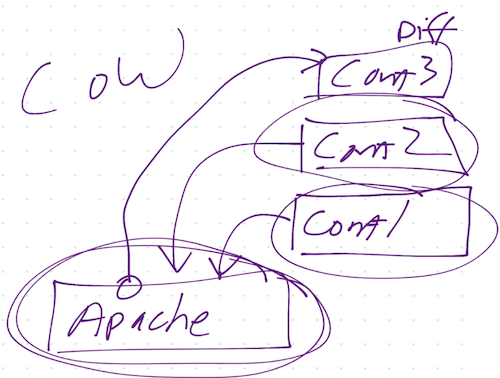 COW
Diff
Cont3
Cont2
Cont1
Apache